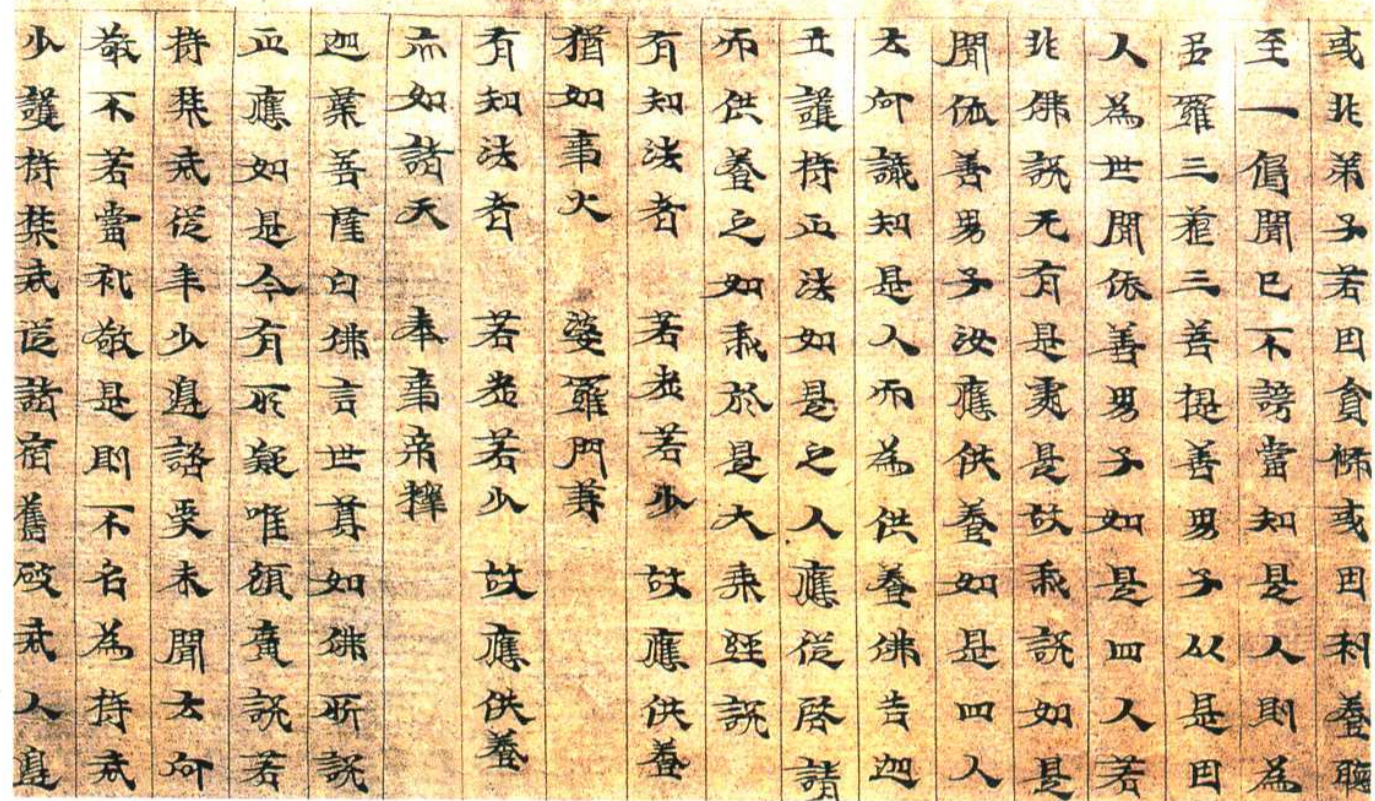 或非弟子若因貪怖或因利養聽
至一偈聞已不謗當知是人則為
多羅三藐三菩提善男子以是因
人為世間依善男子如是四人若
非佛說无有是處是故我說如是
間依善男子汝應供養如是四人
云何識知是人而為供養佛告迦
立護持正法如是之人應從啓請
而供養之如我於是大乘經說
有知法者　若老若少　故應供養
猶如事火　婆羅門等
有知法者　若老若少　故應供養
亦如諸天　奉事帝釋
迦葉菩薩白佛言世尊如佛所說
正應如是今有所疑唯願廣說若
持禁戒從年少邊諮受未聞云何
敬不若當礼敬是則不名為持戒
少護持禁戒從諸宿舊破戒人邊